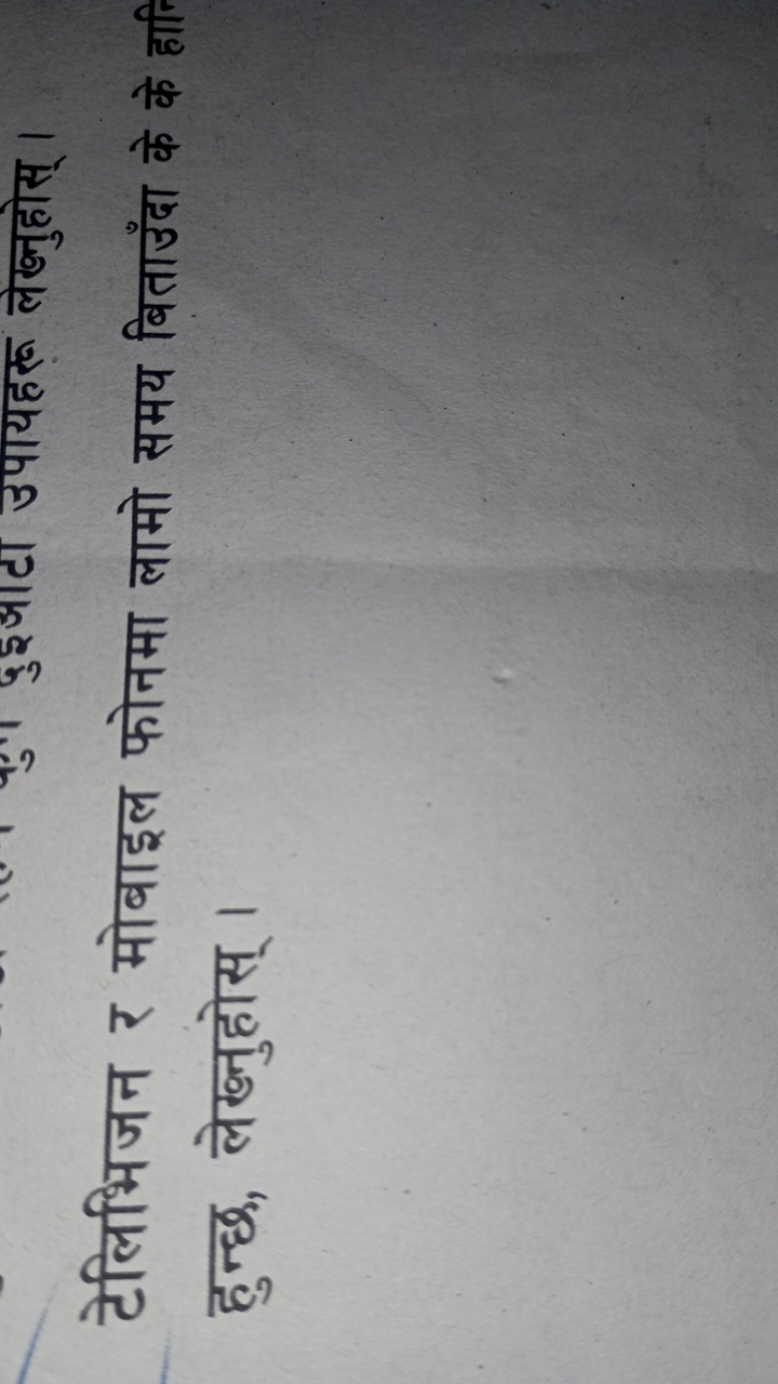 दुइओटा उपायहरू लेख्नुहोस् ।
टेलिभिजन र मोबाइल फोनमा लामो समय बिताउँदा के के
हुन्छ, लेख्नुहोस् ।